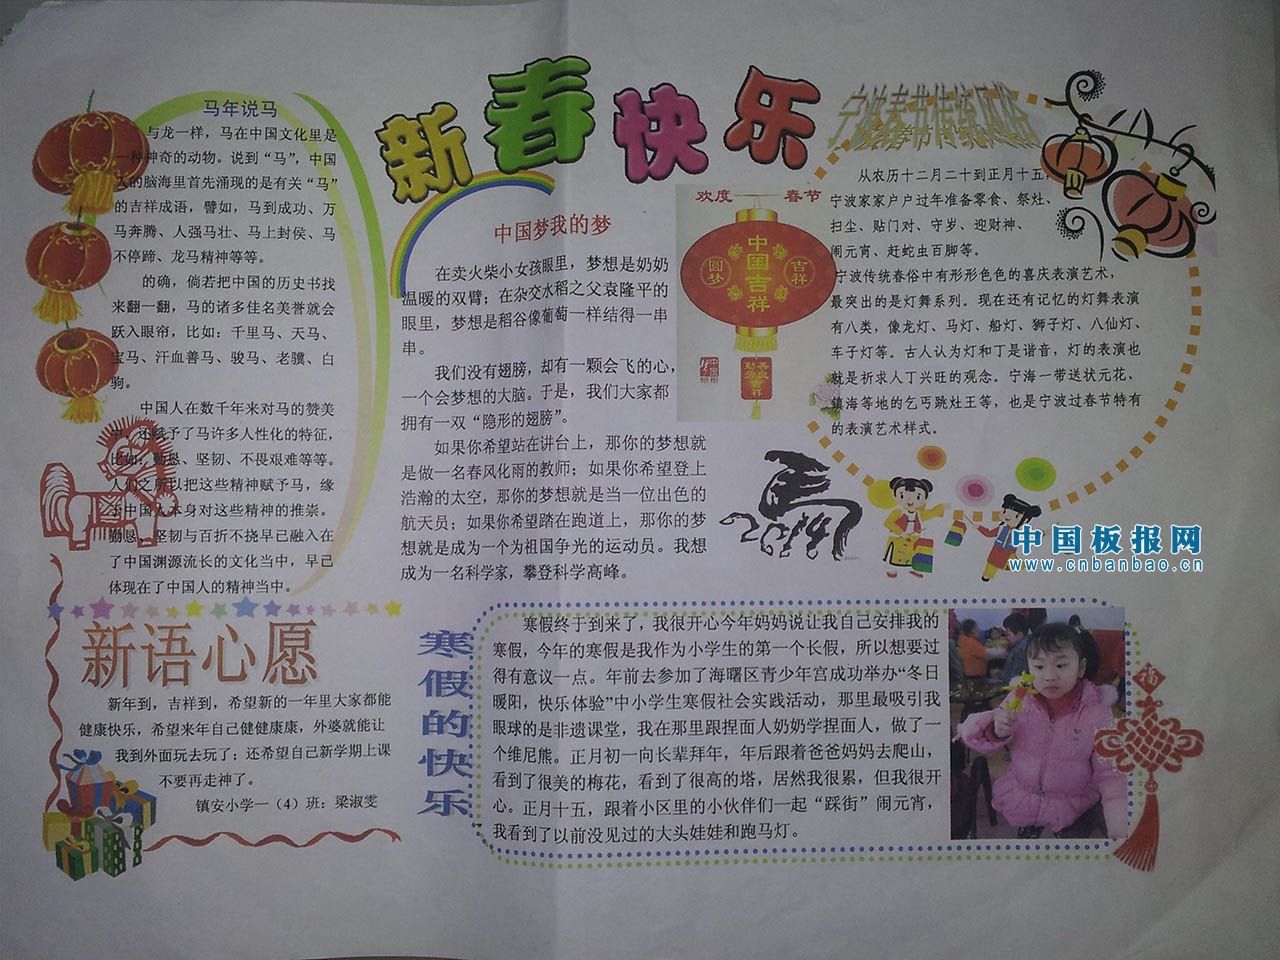 新春快乐
马年说马
与龙一样，马在中国文化里是
一种神奇的动物。说到“马”，中国
人的脑海里首先涌现的是有关“马”
的吉祥成语，譬如，马到成功、万
马奔腾、人强马壮、马上封侯、马
不停蹄、龙马精神等等。
的确，倘若把中国的历史书找
来翻一翻，马的诸多佳名美誉就会
跃入眼帘，比如：千里马、天马、
宝马、汗血善马、骏马、老骥、白
驹。
中国人在数千年来对马的赞美
中，还赋予了马许多人性化的特征，
比如：勤恳、坚韧、不畏艰难等等。
人们之所以把这些精神赋予马，缘
于中国人本身对这些精神的推崇。
勤恳、坚韧与百折不挠早已融入在
了中国渊源流长的文化当中，早已
体现在了中国人的精神当中。
中国梦我的梦
在卖火柴小女孩眼里，梦想是奶奶
温暖的双臂；在杂交水稻之父袁隆平的
眼里，梦想是稻谷像葡萄一样结得一串
串。
我们没有翅膀，却有一颗会飞的心，
一个会梦想的大脑。于是，我们大家都
拥有一双“隐形的翅膀”。
如果你希望站在讲台上，那你的梦想就
是做一名春风化雨的教师；如果你希望登上
浩瀚的太空，那你的梦想就是当一位出色的
航天员；如果你希望踏在跑道上，那你的梦
想就是成为一个为祖国争光的运动员。我想
成为一名科学家，攀登科学高峰。
欢度 春节
中国吉祥
圆梦
吉祥
宁波春节传统风俗
从农历十二月二十到正月十五，
宁波家家户户过年准备零食、祭灶、
扫尘、贴门对、守岁、迎财神、
闹元宵、赶蛇虫百脚等。
宁波传统春俗中有形形色色的喜庆表演艺术，
最突出的是灯舞系列。现在还有记忆的灯舞表演
有八类，像龙灯、马灯、船灯、狮子灯、八仙灯、
车子灯等。古人认为灯和丁是谐音，灯的表演也
就是祈求人丁兴旺的观念。宁海一带送状元花、
镇海等地的乞丐跳灶王等，也是宁波过春节特有
的表演艺术样式。
中国板报网
www.cnbanbao.cn
新语心愿
新年到，吉祥到，希望新的一年里大家都能
健康快乐，希望来年自己健健康康，外婆就能让
我到外面玩去玩了；还希望自己新学期上课
不要再走神了。
镇安小学一（4）班：梁淑雯
寒假的快乐
寒假终于到来了，我很开心今年妈妈说让我自己安排我的
寒假，今年的寒假是我作为小学生的第一个长假，所以想要过
得有意义一点。年前去参加了海曙区青少年宫成功举办“冬日
暖阳，快乐体验”中小学生寒假社会实践活动，那里最吸引我
眼球的是非遗课堂，我在那里跟捏面人奶奶学捏面人，做了一
个维尼熊。正月初一向长辈拜年，年后跟着爸爸妈妈去爬山，
看到了很美的梅花，看到了很高的塔，居然我很累，但我很开
心。正月十五，跟着小区里的小伙伴们一起“踩街”闹元宵，
我看到了以前没见过的大头娃娃和跑马灯。
福